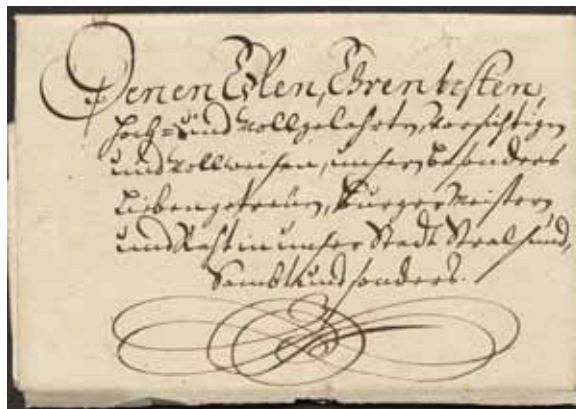 Denen Edlen, Ehrenvesten,
Hoch- und Wollgelahrten, Vorsichtigen
und Wollweisen, unsern besonders
Lieben getreüen, Bürger Meistern
und Raht in unser Stadt Stralsund,
Sambt und sonders.